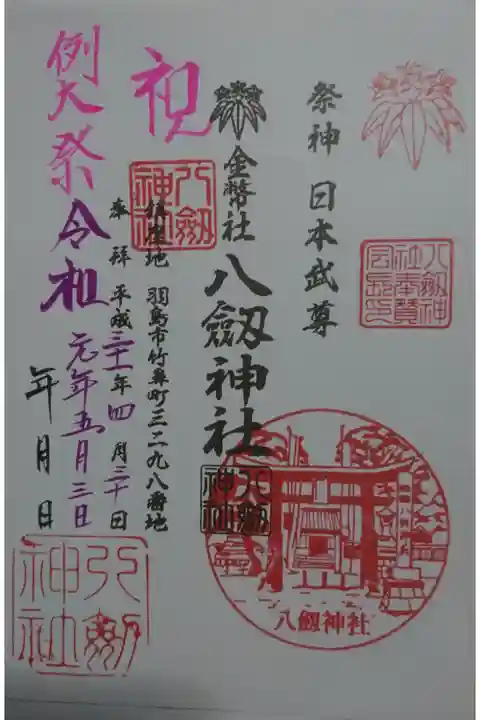 祭神 日本武尊
八劔神社奉賛会長之印
金幣社 八劔神社
八劔神社
鎮座地 羽島市竹鼻町三二九八番地
奉拝 平成三十一年四月三十日
八劔神社
祝
令和元年五月三日
例大祭
年月日
八劔神社
八劔神社